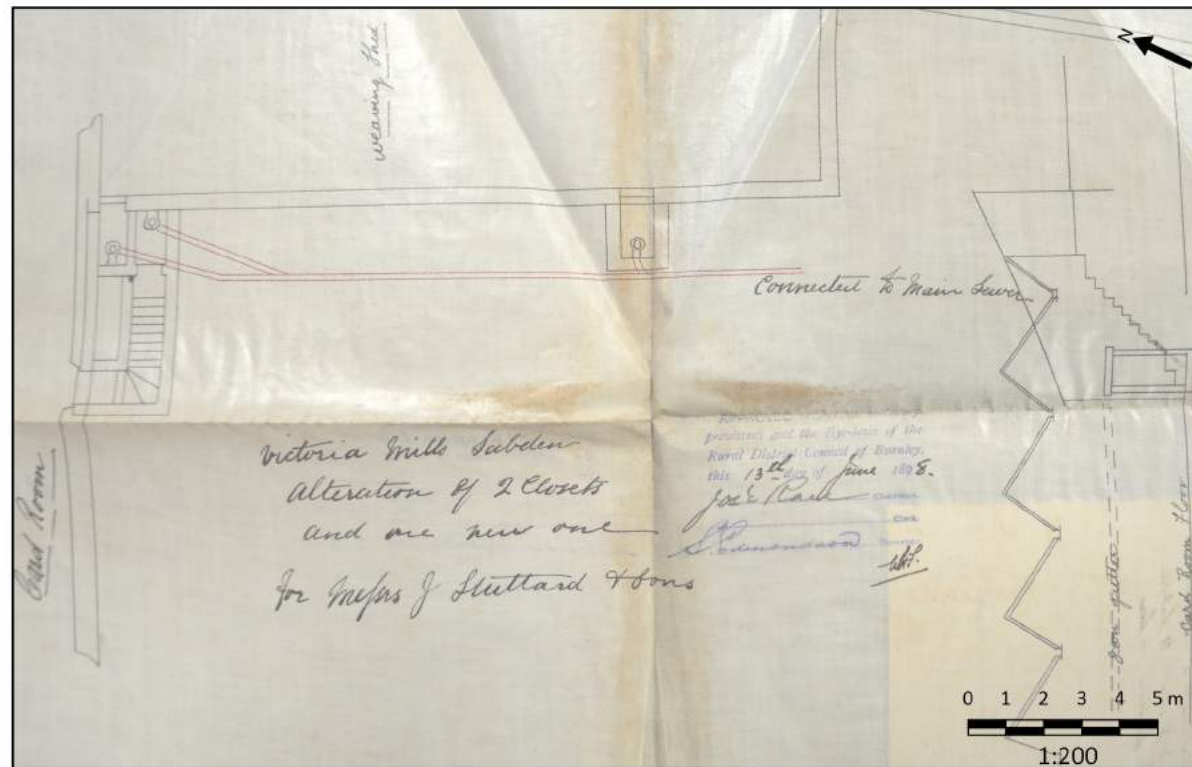 N
weaving Shed
Connected to Main Sewer
Victoria Mills Sabden
Alteration of 2 Closets
and one new one
for Messrs J Stuttard & Sons
provisions and the Bye-laws of the
Rural District Council of Burnley,
this 13th day of June 1898.
Clerk
S. Edmondson
Card Room
iron gutter
Card Room Floor
0 1 2 3 4 5 m
1:200